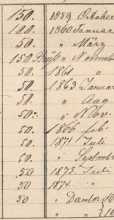 150. 1859 October
100. 1860 Januar
50. " März
150 " Novemb
50. 1861 "
50. 1863 Januar
50. " Aug
50. " Nov.
50. 1866 Feb
50. 1871 Juli
50. " Septemb
50. 1873 Juli
50 1874 "
50 "